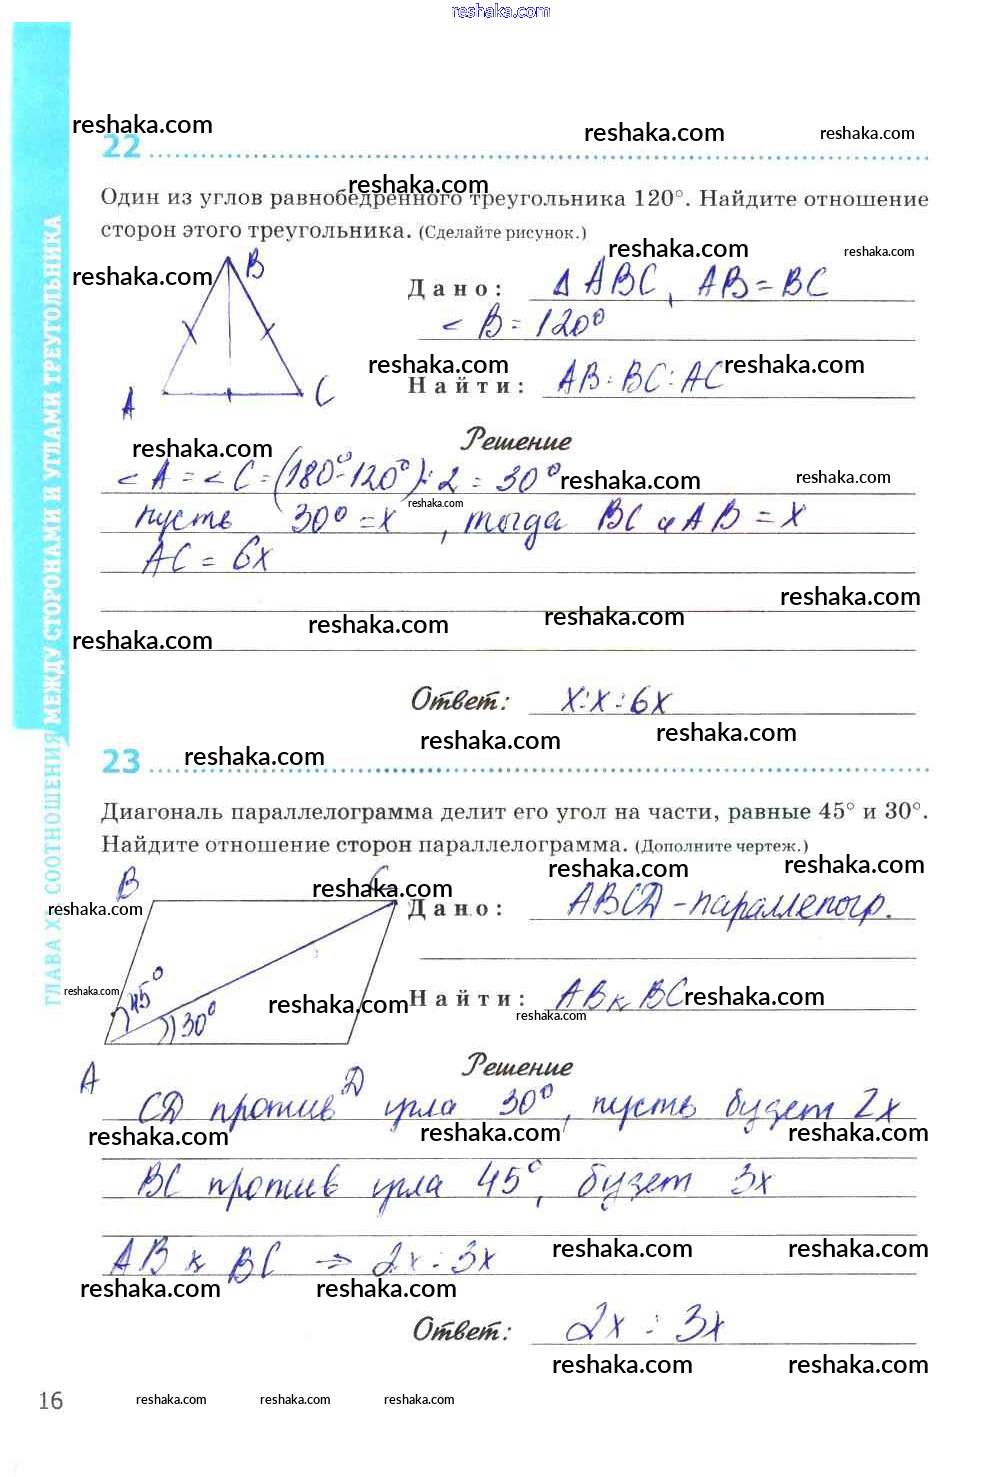 reshaka.com
reshaka.com
22
reshaka.com
reshaka.com
reshaka.com
Один из углов равнобедренного треугольника 120°. Найдите отношение
сторон этого треугольника. (Сделайте рисунок.)
reshaka.com
reshaka.com
reshaka.com
B
Дано: Δ ABC, AB = BC
< B = 120°
reshaka.com
reshaka.com
Найти: AB : BC : AC
A
C
Решение
reshaka.com
< A = < C = (180° - 120°) : 2 = 30°
reshaka.com
reshaka.com
reshaka.com
пусть 30° = x, тогда BC и AB = x
AC = 6x
reshaka.com
reshaka.com
reshaka.com
reshaka.com
Ответ: x : x : 6x
reshaka.com
reshaka.com
23
reshaka.com
Диагональ параллелограмма делит его угол на части, равные 45° и 30°.
Найдите отношение сторон параллелограмма. (Дополните чертеж.)
reshaka.com
reshaka.com
B
C
reshaka.com
reshaka.com
Дано: ABCD - параллелогр.
45°
30°
reshaka.com
reshaka.com
Найти: AB к BC
reshaka.com
reshaka.com
A
D
Решение
CD против угла 30°, пусть будет 2x
reshaka.com
reshaka.com
reshaka.com
BC против угла 45°, будет 3x
AB к BC ⇒ 2x : 3x
reshaka.com
reshaka.com
reshaka.com
reshaka.com
Ответ: 2x : 3x
reshaka.com
reshaka.com
16
reshaka.com
reshaka.com
reshaka.com
СООТНОШЕНИЯ МЕЖДУ СТОРОНАМИ И УГЛАМИ ТРЕУГОЛЬНИКА